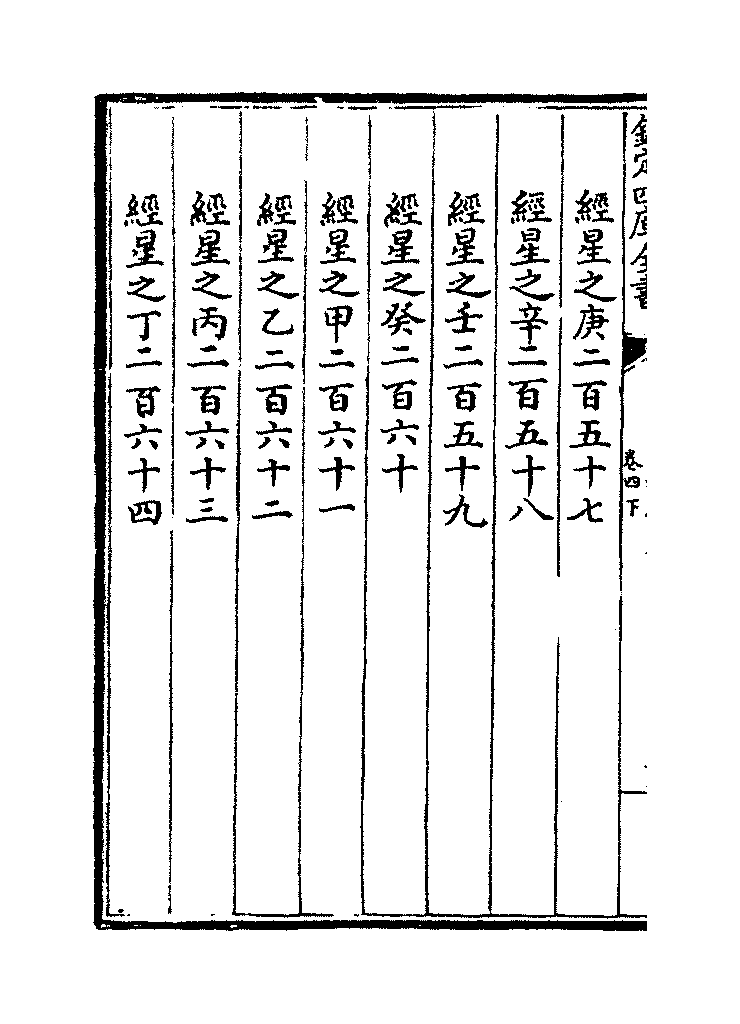 欽定四庫全書
卷四下
經星之庚二百五十七
經星之辛二百五十八
經星之壬二百五十九
經星之癸二百六十
經星之甲二百六十一
經星之乙二百六十二
經星之丙二百六十三
經星之丁二百六十四